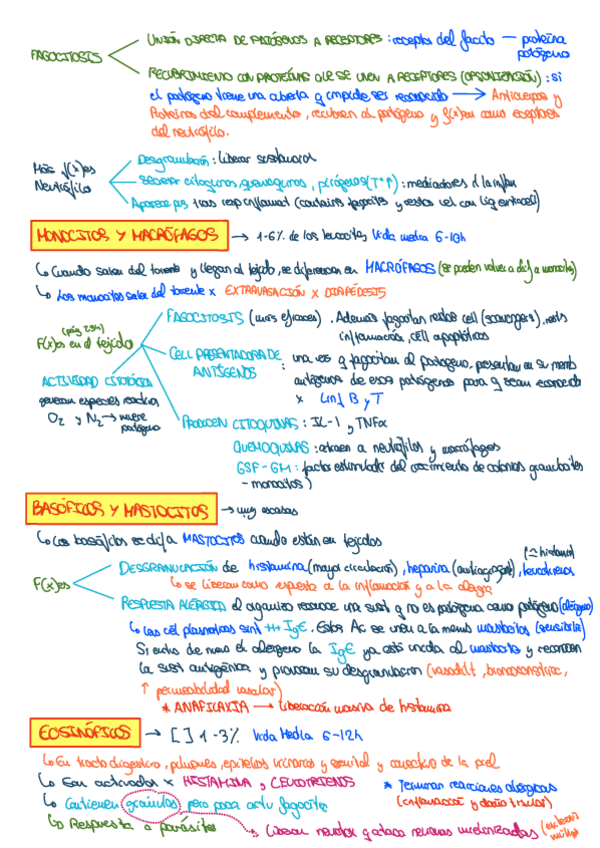 UNIÓN DIRECTA DE PATÓGENOS A RECEPTORES : receptor del fagocito — proteína
patógeno
FAGOCITOSIS
RECUBRIMIENTO CON PROTEÍNAS QUE SE UNEN A RECEPTORES (OPSONIZACIÓN) : si
el patógeno tiene una cubierta q impide ser reconocido → Anticuerpos y
Proteínas del complemento, recubren al patógeno y f(x)an como receptores
del neutrófilo.
Desgranulación : liberar sustancias
Más f(x)es
Neutrófilo
Secretar citoquinas, quimioquinas, pirógenos (Tª↑) : mediadores d la inflam
Apoptosis tras resp inflamat (contains fagocitos y restos cel con lig)
MONOCITOS Y MACRÓFAGOS → 1-6% de los leucocitos Vida media 6-10h
↳ Cuando salen del torrente y llegan al tejido, se diferencian en MACRÓFAGOS (se pueden volver a dif a monocito)
↳ Los monocitos salen del torrente x EXTRAVASACIÓN x DIAPÉDESIS
FAGOCITOSIS (más eficaces) . Además fagocitan restos cell (scavengers), rests
inflamación, cell apoptóticas
(pág 234)
F(x)es en el tejido
CELL PRESENTADORA DE
ANTÍGENOS : una vez q fagocitan al patógeno, presentan en su memb
antígenos de esos patógenos para q sean reconocido
x Linf B y T
ACTIVIDAD CITOLÓGICA
generan especies reactivas
O2 y N2 → muere
patógeno
PRODUCEN CITOQUINAS : IL-1 y TNFα
QUIMIOQUINAS : atraen a neutrófilos y macrófagos
GSF-GM : factor estimulador del crecimiento de colonias granulocitos
- monocitos)
BASÓFILOS Y MASTOCITOS → muy escasos
↳ Los basófilos se dif a MASTOCITOS cuando están en tejidos
(≈ histamina)
DESGRANULACIÓN de histamina (mayor circulación), heparina (anticoagulante), leucotrienos
F(x)es
↳ se liberan como respuesta a la inflamación y a la alergia
RESPUESTA ALÉRGICA el organismo reconoce una sust q no es patógena como patógeno (alérgeno)
↳ Las cél plasmáticas sint +++ IgE. Estos Ac se unen a la memb mastocitos (sensibiliz)
Si entra de nuevo el alérgeno la IgE ya está unida al mastocito y reconocen
la sust antigénica y provocan su desgranulación (vasodilat, broncoconstricc,
↑ permeabilidad vascular)
* ANAFILAXIA → Liberación masiva de histamina
EOSINÓFILOS → [ ] 1-3% Vida Media 6-12h
↳ En tracto digestivo, pulmones, epitelios urinarios y genital y conectivo de la piel
↳ Son activados x HISTAMINA y LEUCOTRIENOS
* Terminan reacciones alérgicas
↳ Contienen gránulos pero poca activ fagocítica
(inflamación y daño tisular)
↳ Respuesta a parásitos
↳ Liberan y ataca neuronas mielinizadas (esclerosis
múltiple)